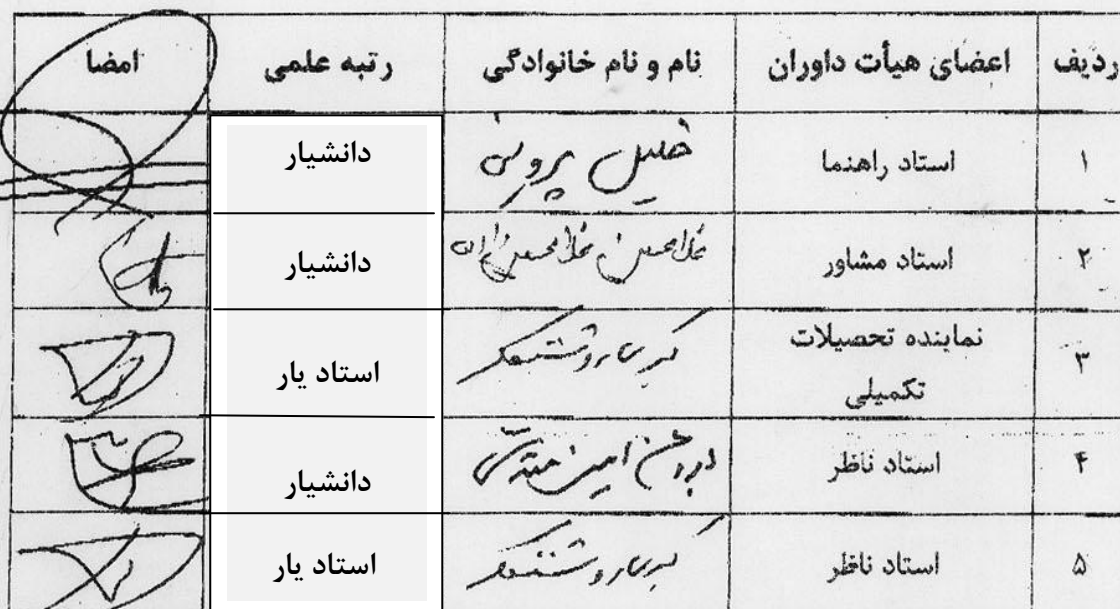 ردیف اعضای هیأت داوران نام و نام خانوادگی رتبه علمی امضا
۱ استاد راهنما خلیل پروینی دانشیار
۲ استاد مشاور دانشیار
۳ نماینده تحصیلات
تکمیلی کبری روشنفکر استاد یار
۴ استاد ناظر دانشیار
۵ استاد ناظر کبری روشنفکر استاد یار